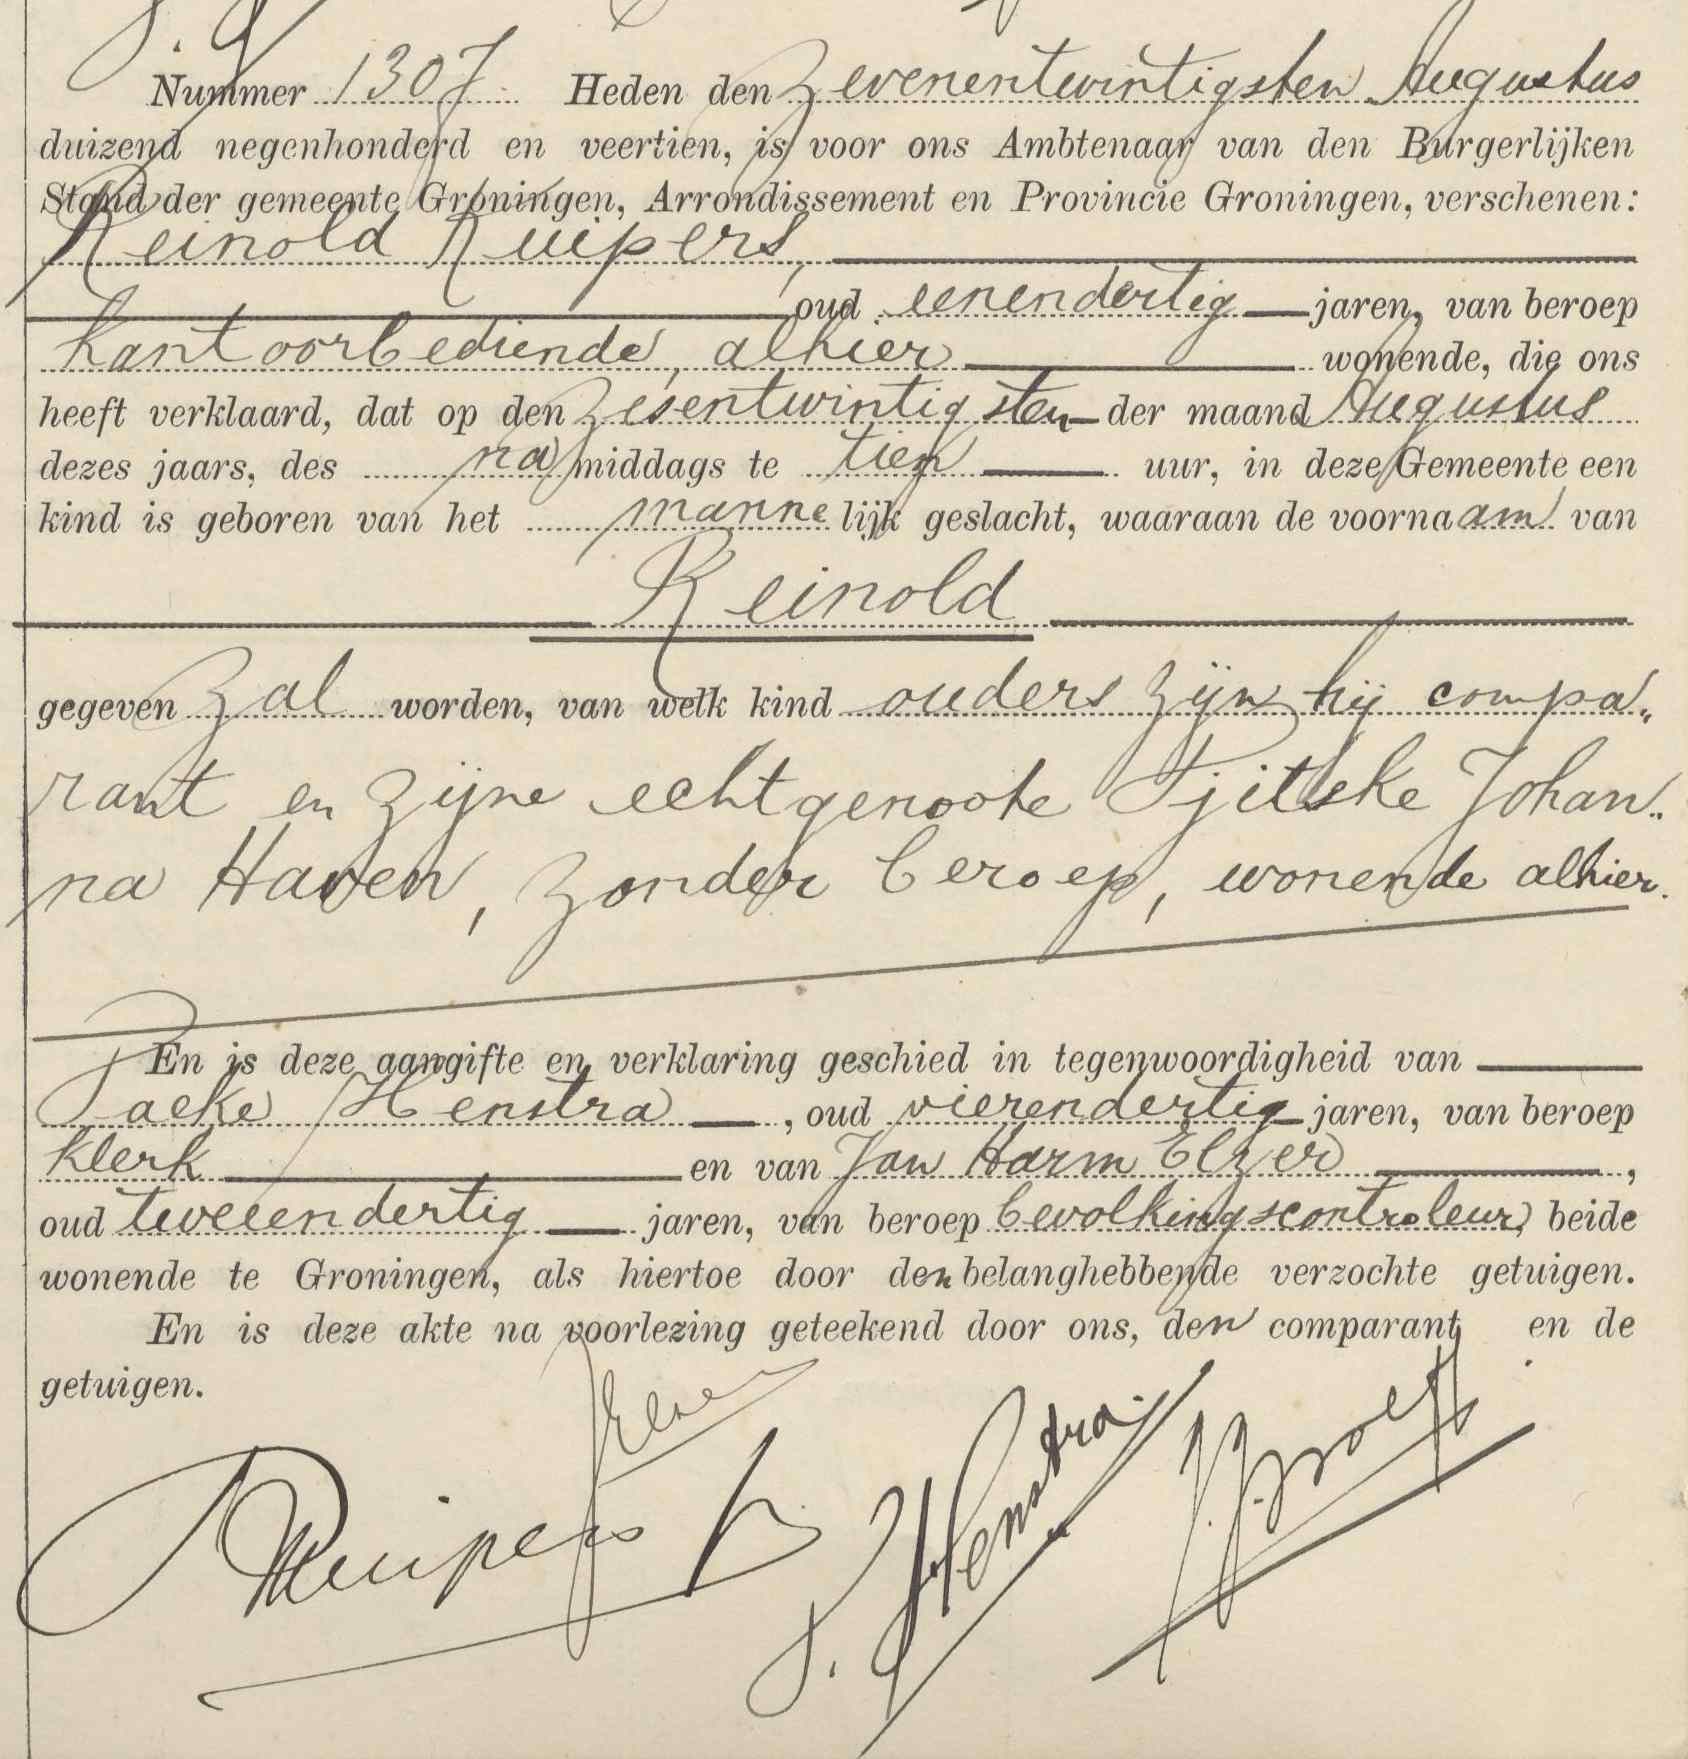 Nummer 1307 Heden den zevenentwintigsten Augustus
duizend negenhonderd en veertien, is voor ons Ambtenaar van den Burgerlijken
Stand der gemeente Groningen, Arrondissement en Provincie Groningen, verschenen:
Reinold Kuipers,
oud eenendertig jaren, van beroep
kantoorbediende, alhier wonende, die ons
heeft verklaard, dat op den zesentwintigsten der maand Augustus
dezes jaars, des na middags te tien uur, in deze Gemeente een
kind is geboren van het mannelijk geslacht, waaraan de voornaam van
Reinold
gegeven zal worden, van welk kind ouders zijn hij compa„
rant en zijne echtgenoote Tjitske Johan„
na Haven, zonder beroep, wonende alhier.
En is deze aangifte en verklaring geschied in tegenwoordigheid van
Paeke Henstra, oud vierendertig jaren, van beroep
klerk en van Jan Harm Elzer,
oud tweeendertig jaren, van beroep bevolkingscontroleur, beide
wonende te Groningen, als hiertoe door den belanghebbende verzochte getuigen.
En is deze akte na voorlezing geteekend door ons, den comparant en de
getuigen.
Elzer
RKuipers P. Henstra